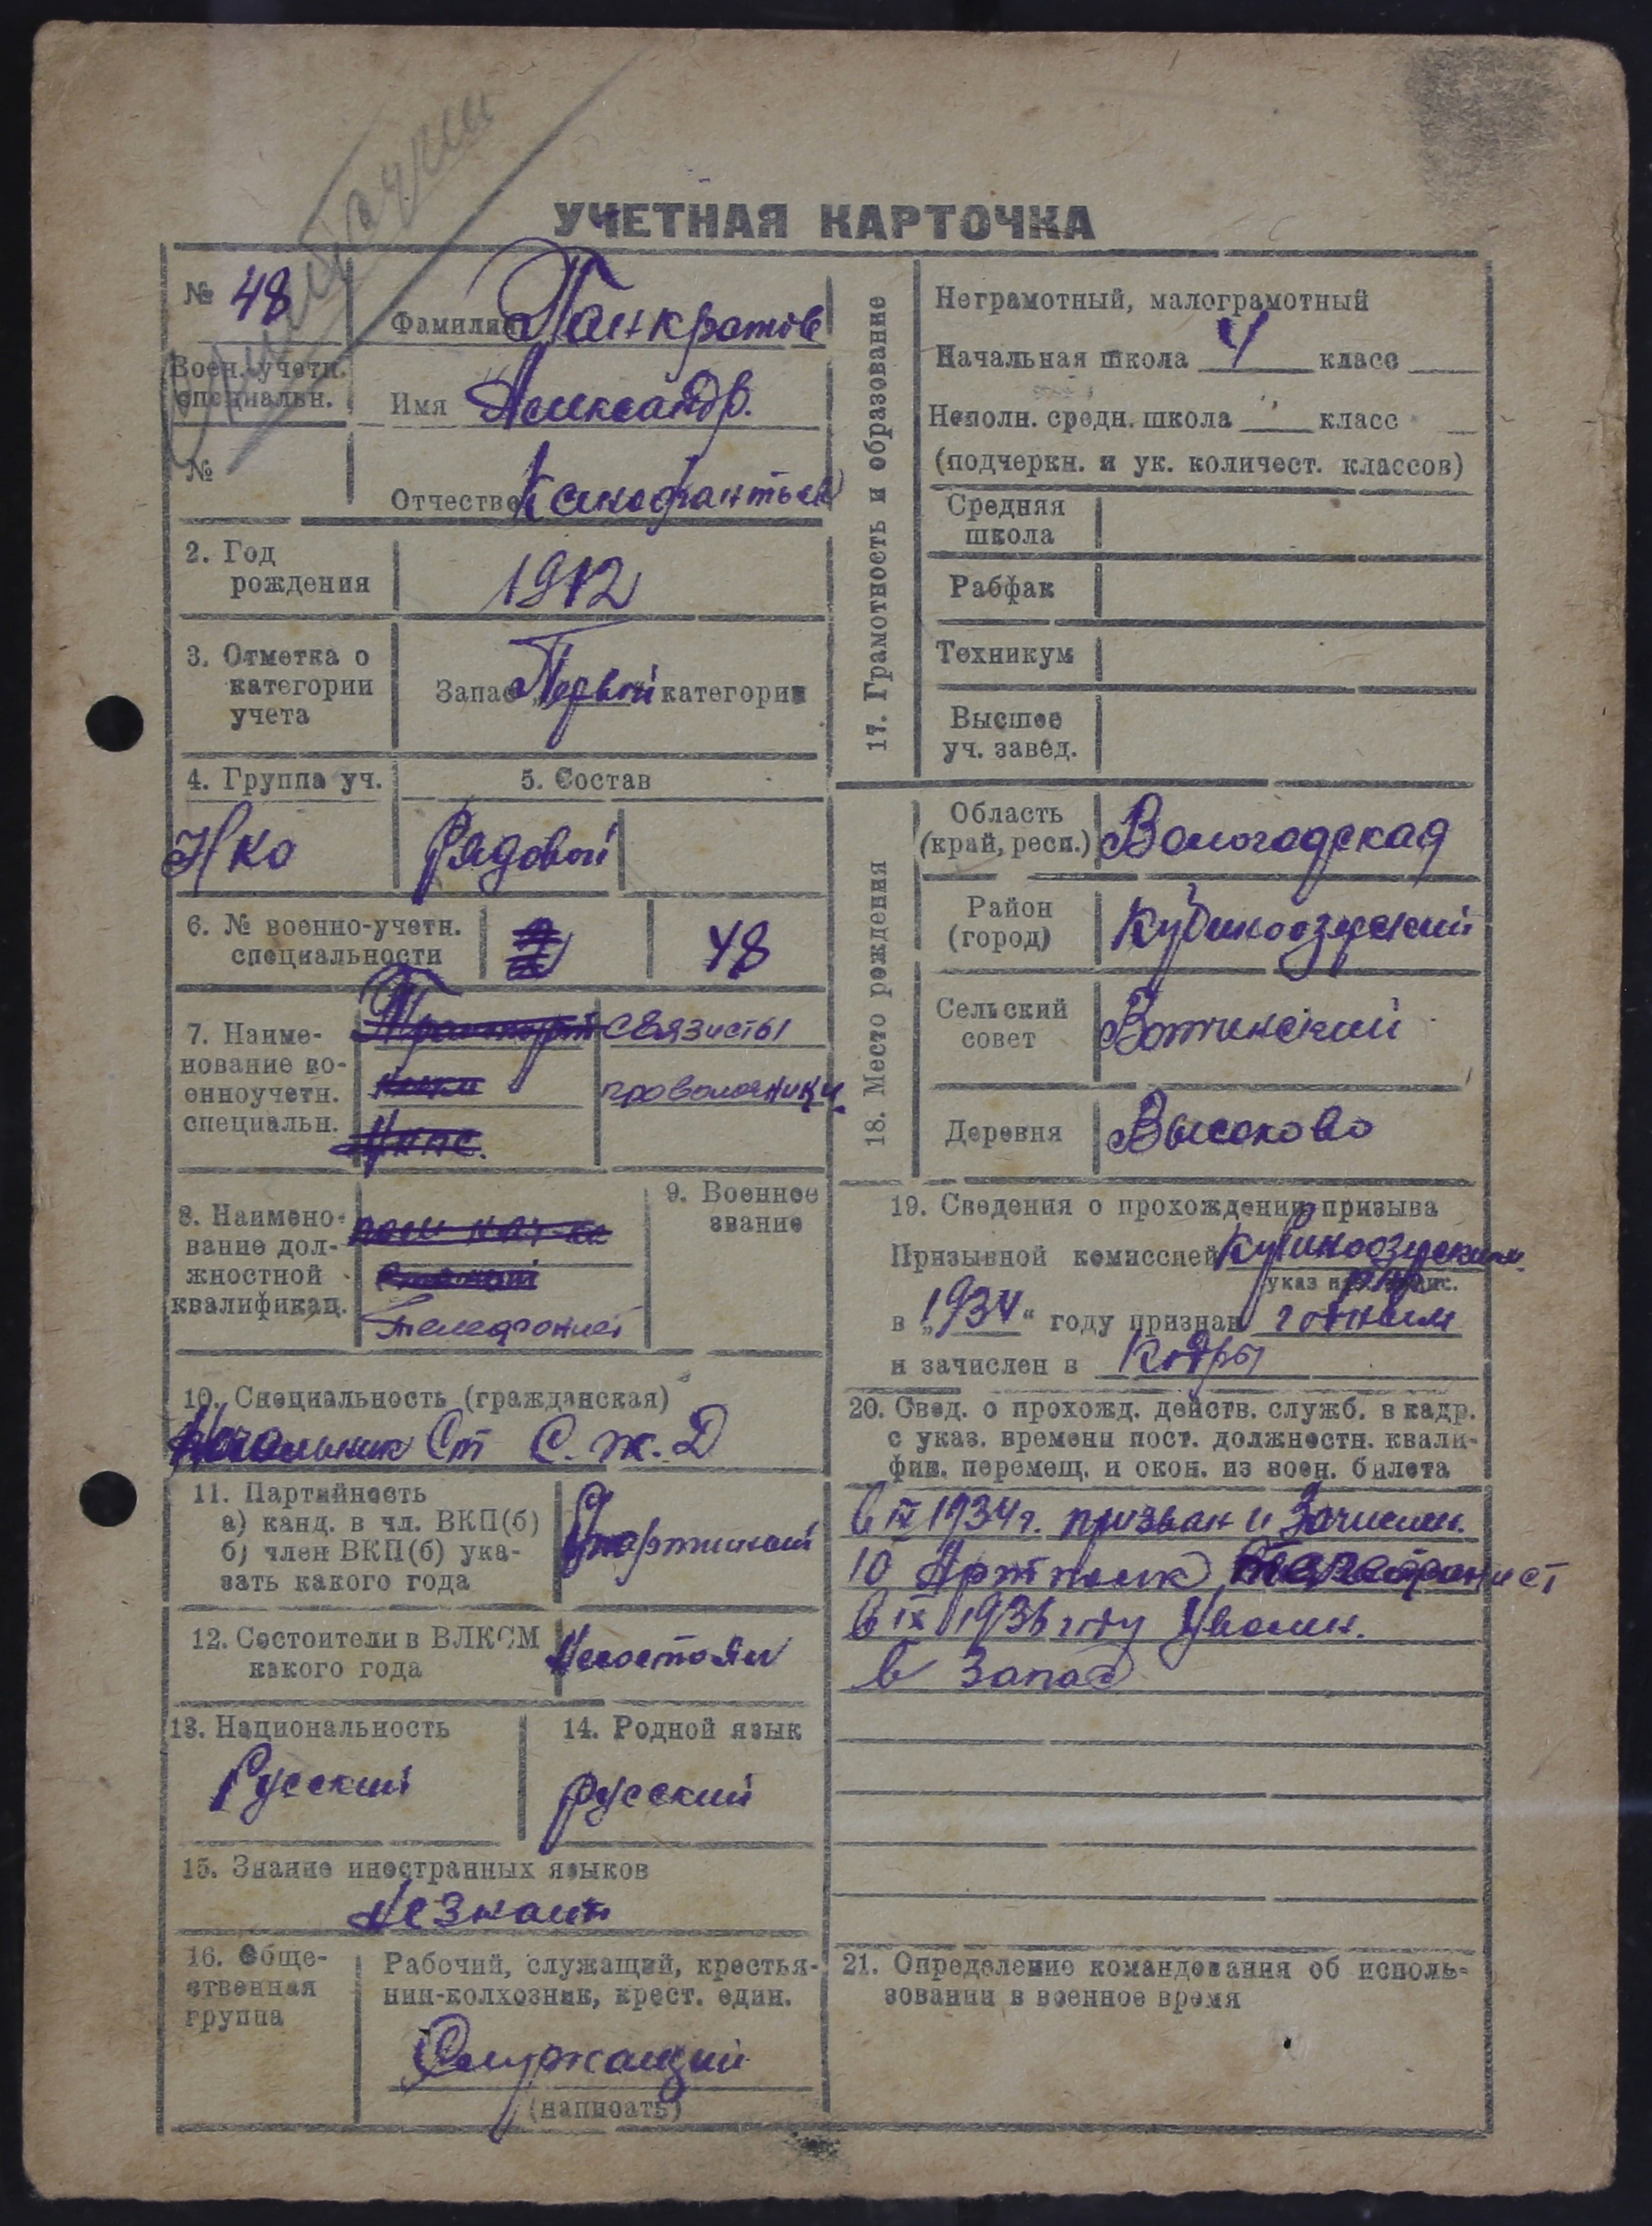 УЧЕТНАЯ КАРТОЧКА
№ 48
Воен.-учетн.
специальн.
№
Фамилия Панкратов
Имя Александр.
Отчество Ксенофантьев
2. Год
рождения
1912
3. Отметка о
категории
учета
Запас Первой категории
4. Группа уч.
5. Состав
НКО
Рядовой
6. № военно-учетн.
специальности
48
7. Наиме-
нование во-
енноучетн.
специальн.
связисты
проволочники
8. Наимено-
вание дол-
жностной
квалификац.
Телефонист
9. Военное
звание
10. Специальность (гражданская)
Начальник Ст С. Ж. Д
11. Партийность
а) канд. в чл. ВКП(б)
б) член ВКП(б) ука-
зать какого года
12. Состоители в ВЛКСМ
какого года
Несостоял
13. Национальность
Русский
14. Родной язык
русский
15. Знание иностранных языков
незнает
16. Обще-
ственная
группа
Рабочий, служащий, крестья-
нин-колхозник, крест. един.
Служащий
(написать)
17. Грамотность и образование
Неграмотный, малограмотный
Начальная школа 4 класс
Неполн. средн. школа класс
(подчеркн. и ук. количест. классов)
Средняя
школа
Рабфак
Техникум
Высшее
уч. завед.
18. Место рождения
Область
(край, респ.)
Вологодская
Район
(город)
Кубиноозерский
Сельский
совет
Вотчинский
Деревня
Высоково
19. Сведения о прохождении призыва
Призывной комиссией Кубиноозерским
в „1934“ году признан годным
и зачислен в Кадры
20. Свед. о прохожд. действ. служб. в кадр.
с указ. времени пост. должностн. квали-
фик. перемещ. и окон. из воен. билета
в IX 1934 г. призван и Зачислен.
10 Арт полк телефонист
в IX 1936 году Уволен.
в Запас
21. Определение командования об исполь-
зовании в военное время